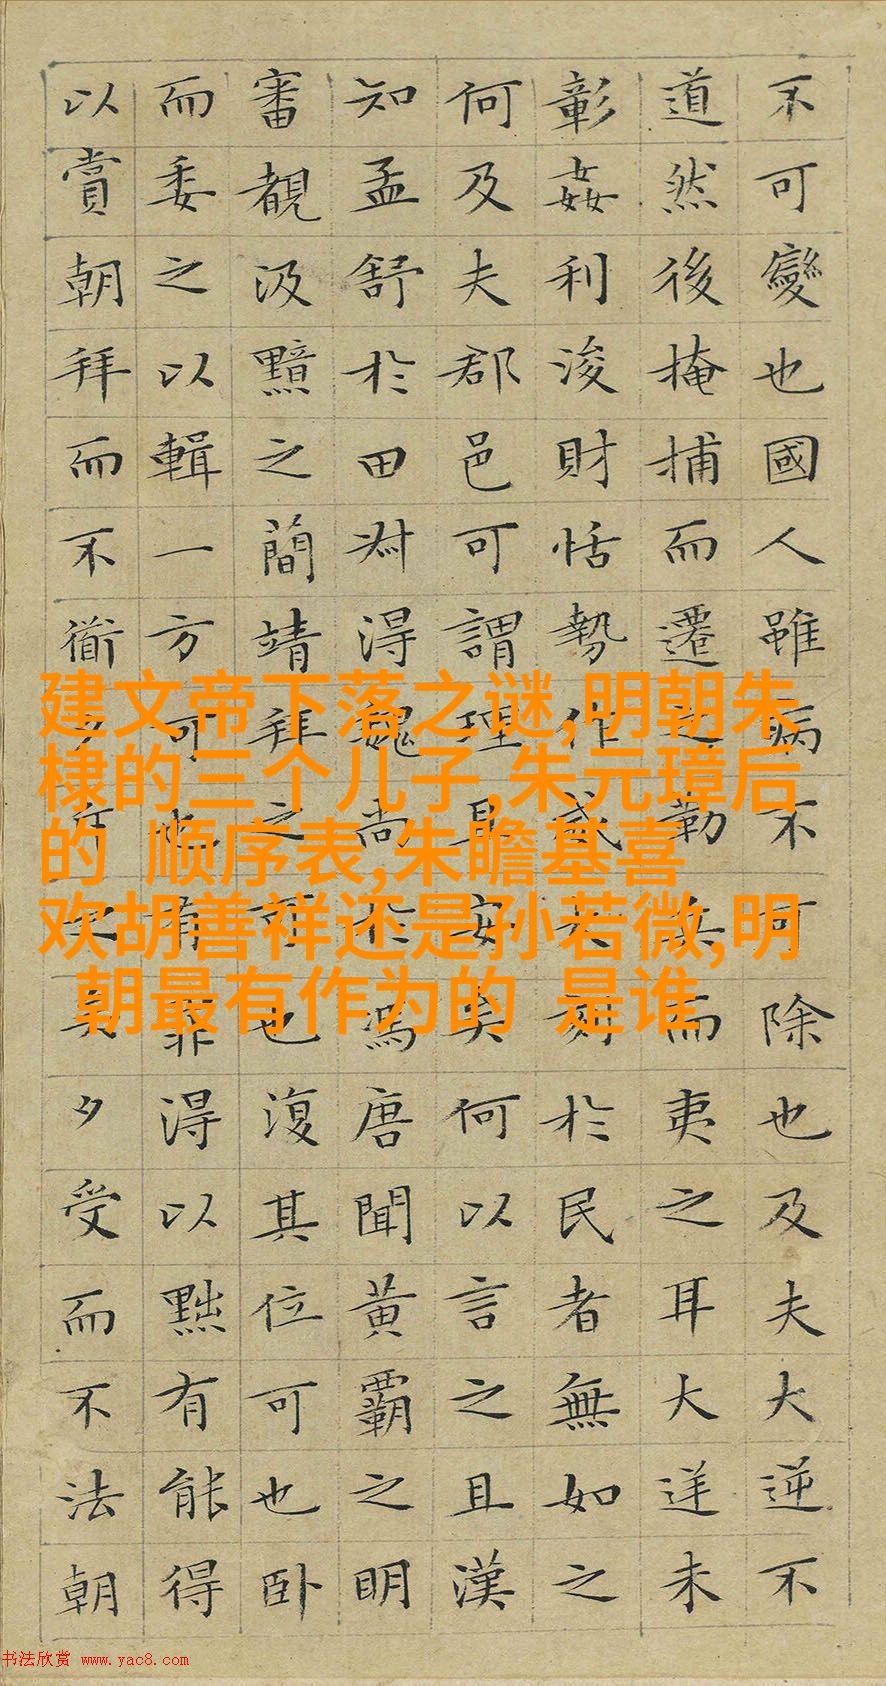 不可變也國人雖病不可除也及夫大逆不
道然後掩捕而遷之勒兵而夷之耳大逆未
彰姦利浚財怙勢作威大刻於民者無如之
何及夫郡邑可謂理且安矣何以言之且漢
知孟舒於田叔得魏尚於馮唐聞黃霸之明
審覩汲黯之簡靖拜之可也復其位可也卧
而委之以輯一方可也有罪得以黜有能得
以賞朝拜而不衜夕斥之矣夕受而不法朝
建文帝下落之谜,明朝朱
棣的三个儿子,朱元璋后
的 顺序表,朱瞻基喜
欢胡善祥还是孙若微,明
朝最有作为的 是谁
书法欣赏 www.yac8.com